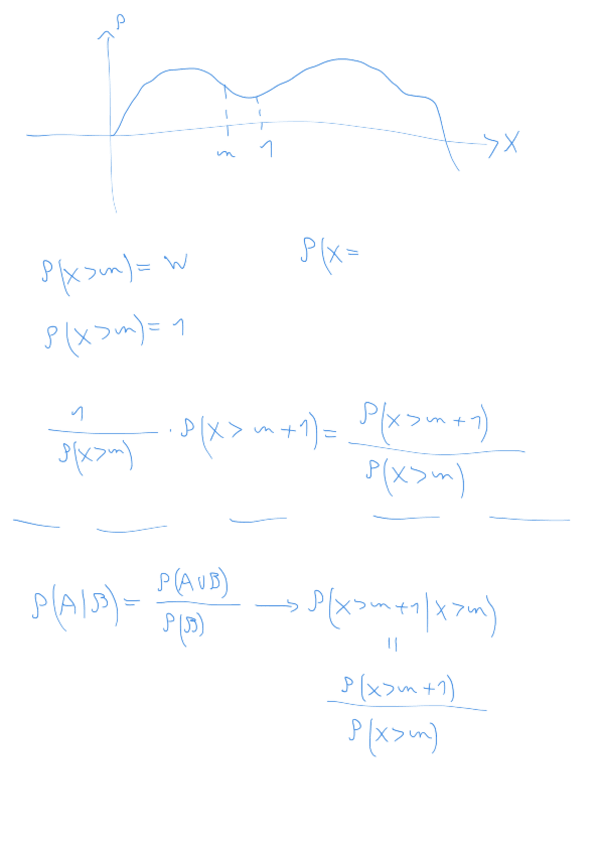 P
m 1 X
P(X>m)= W P(X=
P(X>m)= 1
1/P(X>m) · P(X>m+1)= P(X>m+1)/P(X>m)
P(A|B)= P(A∪B)/P(B) → P(X>m+1|X>m)
=
P(X>m+1)/P(X>m)